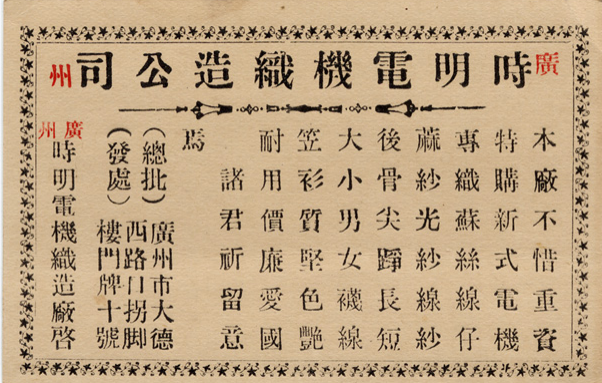 廣州時明電機織造公司
本廠不惜重資
特購新式電機
專織蘇絲線仔
蔴紗光紗線紗
後骨尖踭長短
大小男女襪線
笠衫質堅色艷
耐用價廉愛國
諸君祈留意
焉
(總批發處)廣州市大德
西路口拐脚
樓門牌十號
廣州時明電機織造廠啓